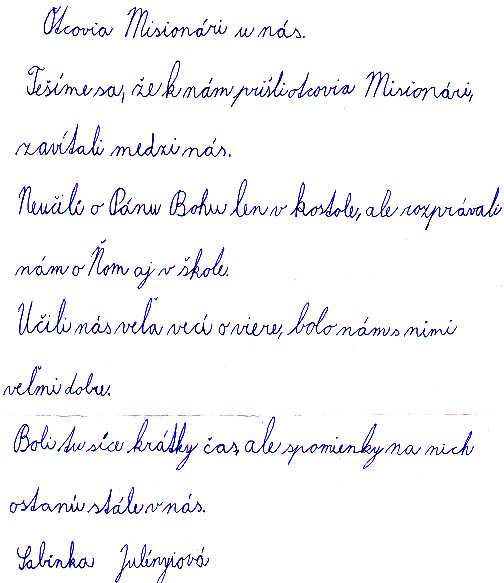 Otcovia Misionári u nás.
Tešíme sa, že k nám prišli otcovia Misionári,
zavítali medzi nás.
Neučili o Pánu Bohu len v kostole, ale rozprávali
nám o Ňom aj v škole.
Učili nás veľa vecí o viere, bolo nám s nimi
veľmi dobre.
Boli tu síce krátky čas, ale spomienky na nich
ostanú stále v nás.
Sabinka Julínyiová